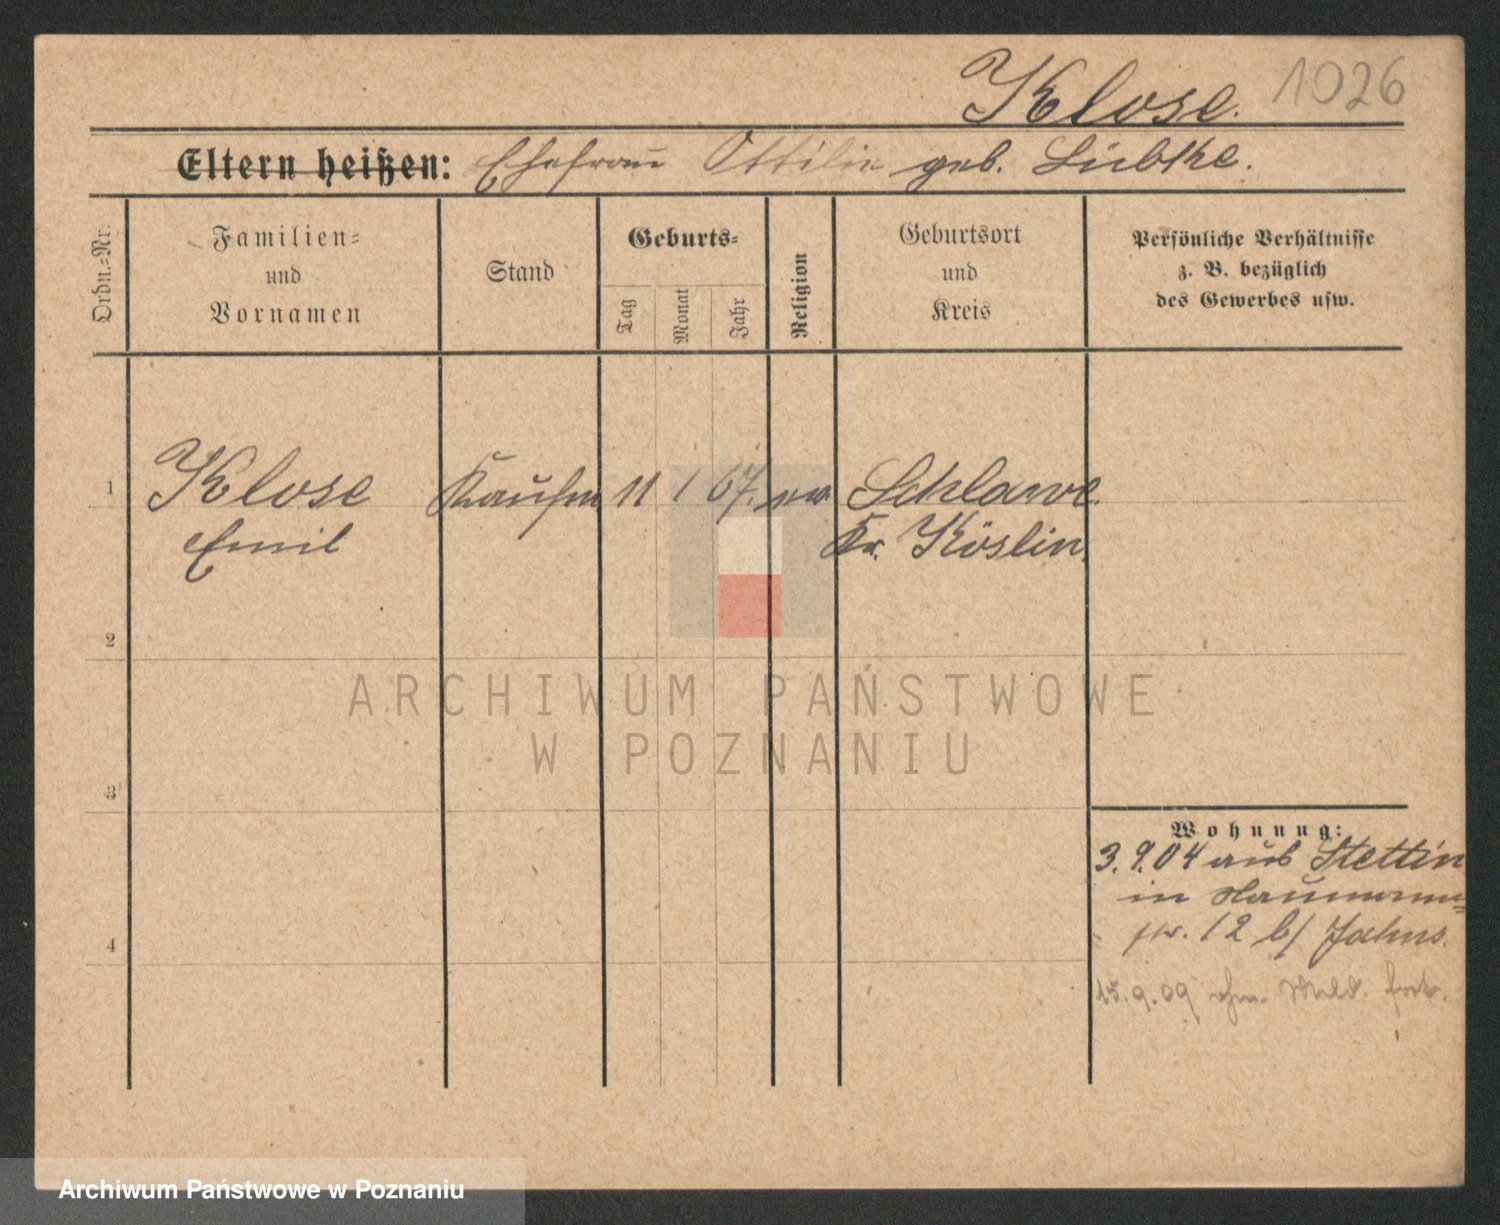 Klose. 1026
Eltern heißen: Ehefrau Ottilie geb. Lübtke.
Ordn.=Nr.
Familien=
und
Vornamen
Stand
Geburts=
Tag
Monat
Jahr
Religion
Geburtsort
und
Kreis
Persönliche Verhältnisse
z. B. bezüglich
des Gewerbes usw.
1 Klose Kaufm 11 1 67. ev Schlawe.
Emil Kr. Köslin.
2
ARCHIWUM PAŃSTWOWE
W POZNANIU
3
Wohnung:
3.9.04 aus Stettin
in Naumann=
str. 12 b/ Jahns.
4
15.9.09 ohne Meld. fort.
Archiwum Państwowe w Poznaniu